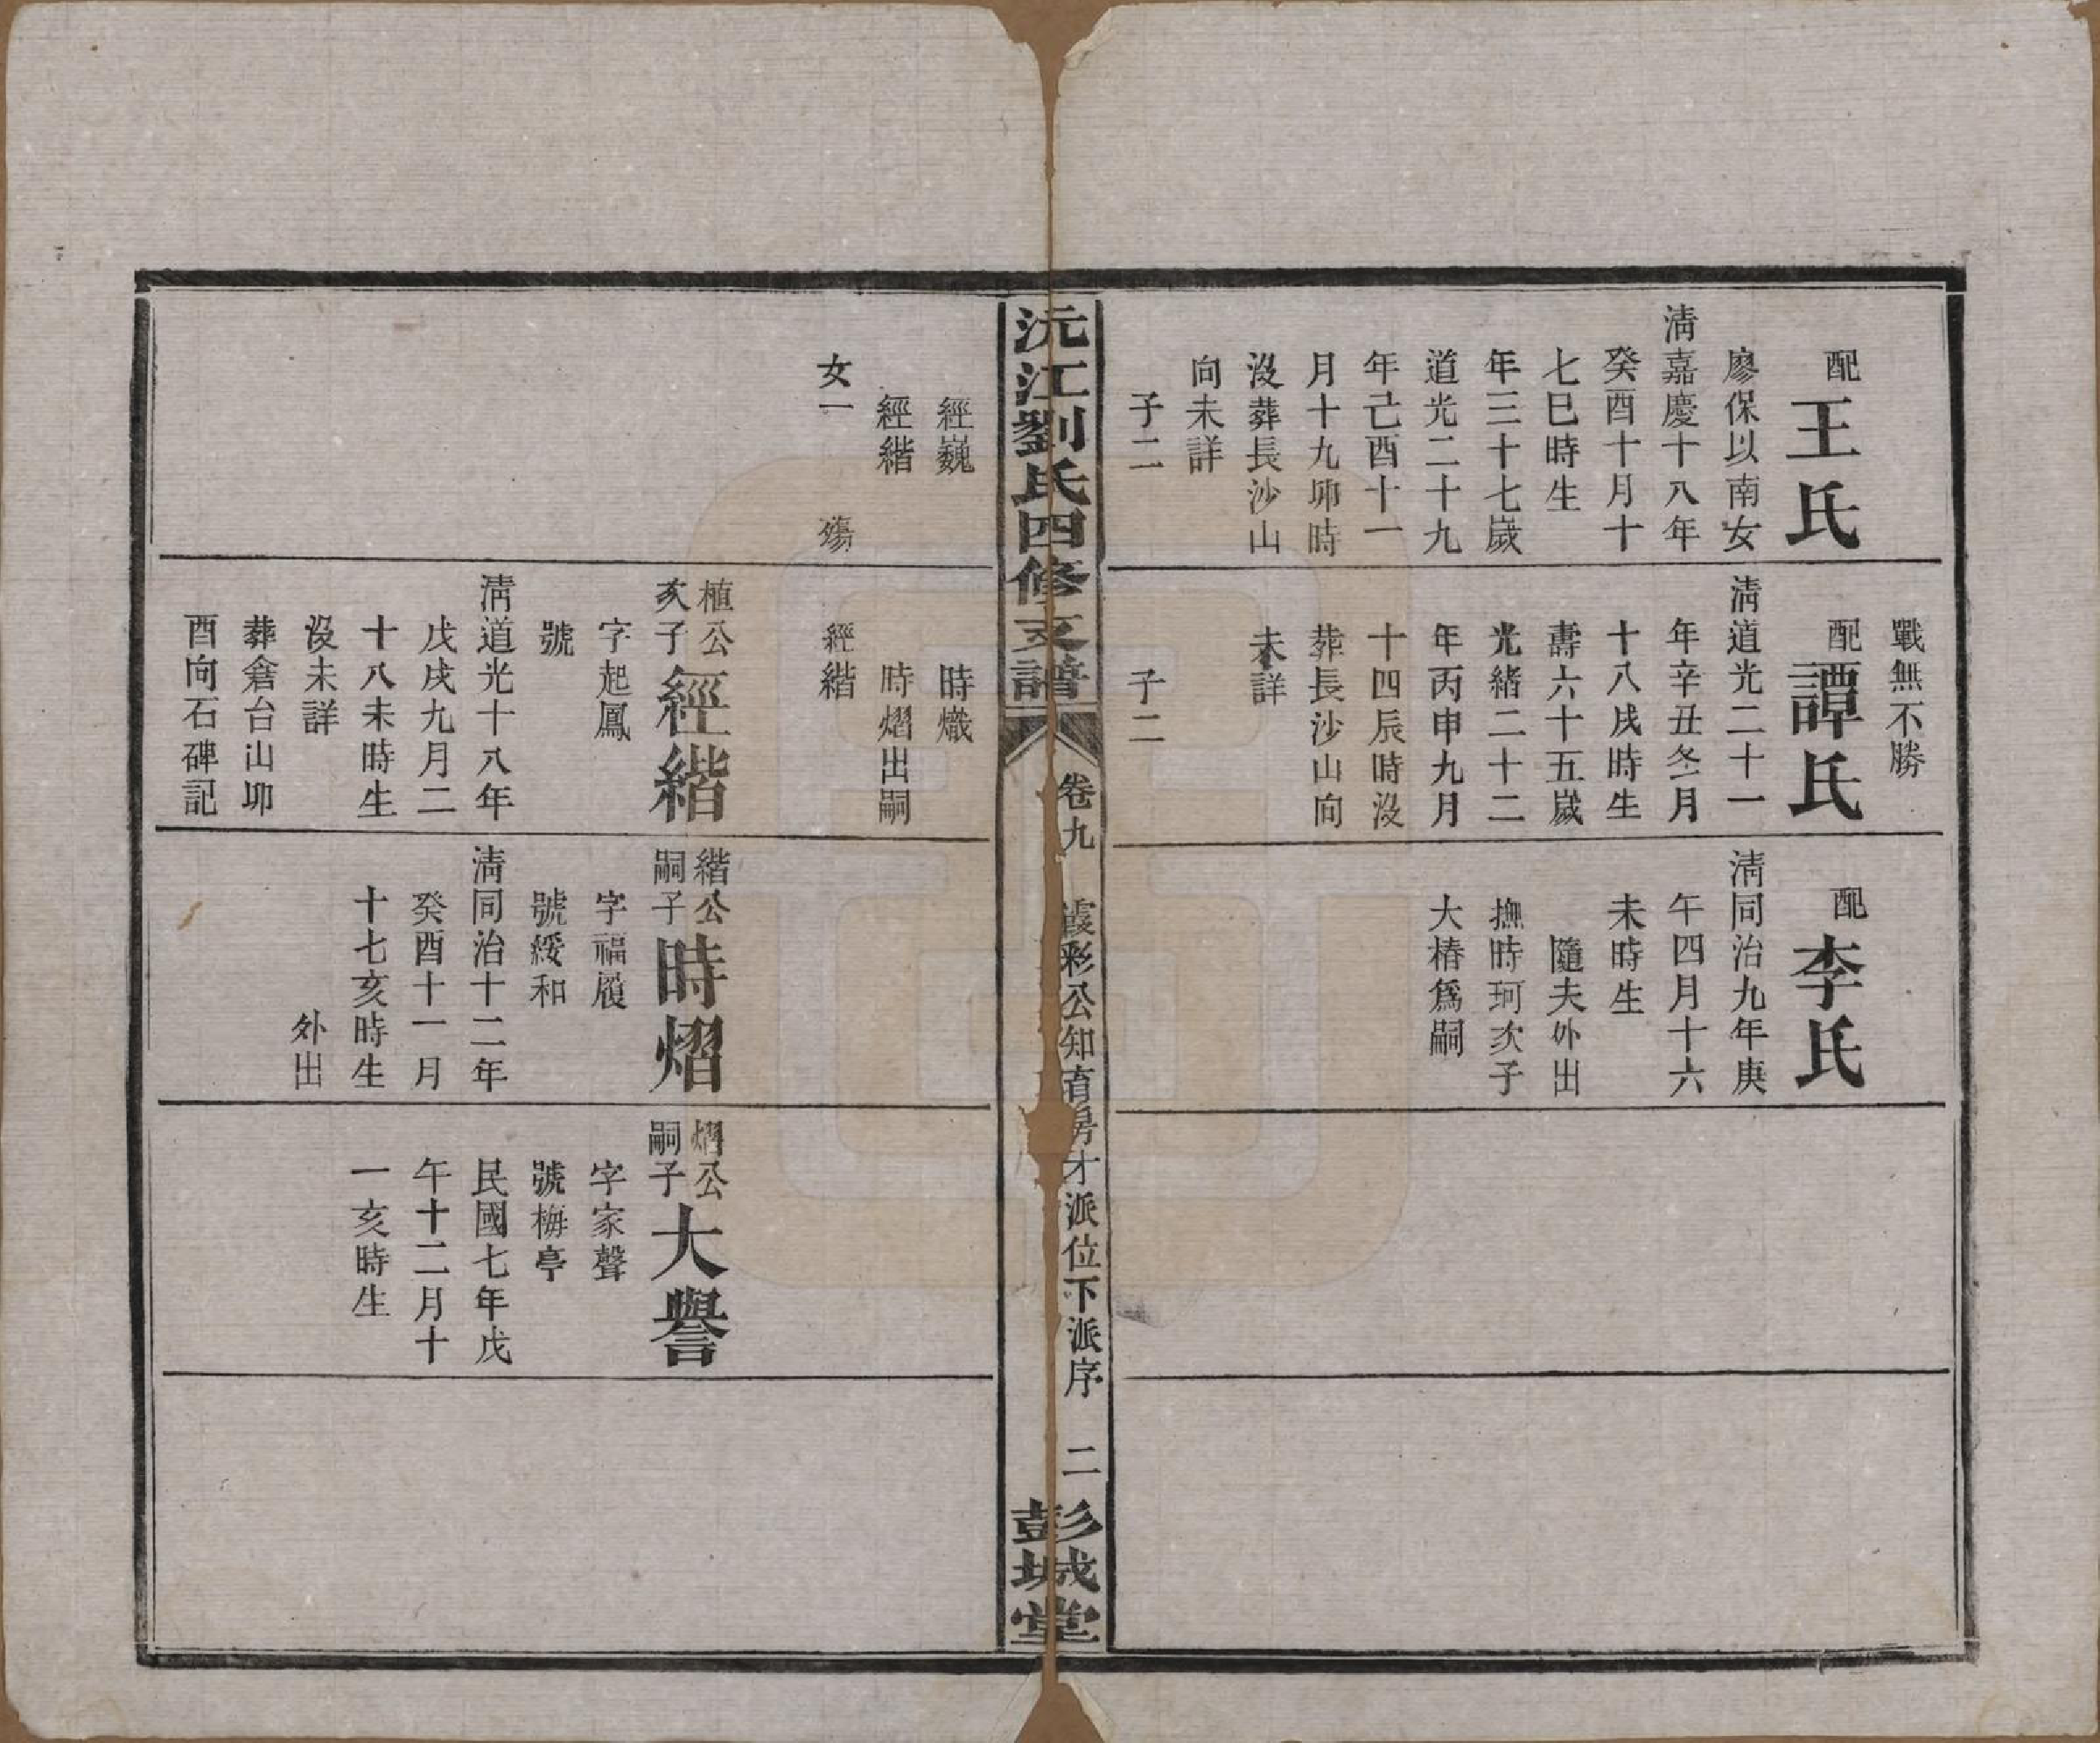 配王氏
廖保以南女
淸嘉慶十八年
癸酉十月十
七巳時生
年三十七歲
道光二十九
年己酉十一
月十九卯時
沒葬長沙山
向未詳
子二
戰無不勝
配譚氏
淸道光二十一
年辛丑冬月
十八戌時生
壽六十五歲
光緒二十二
年丙申九月
十四辰時沒
葬長沙山向
未詳
子二
配李氏
淸同治九年庚
午四月十六
未時生
隨夫外出
撫時珂次子
大椿爲嗣
沅江劉氏四修支譜
卷九
霞彩公知育房才派位下派序
二
彭城堂
經巍
經緒
女一 殤
時熾
時熠出嗣
經緒
植公
亥子
經緒
字起鳳
號
淸道光十八年
戊戌九月二
十八未時生
沒未詳
葬倉台山卯
酉向石碑記
緒公
嗣子
時熠
字福履
號綏和
淸同治十二年
癸酉十一月
十七亥時生
外出
熠公
嗣子
大譽
字家聲
號梅亭
民國七年戊
午十二月十
一亥時生